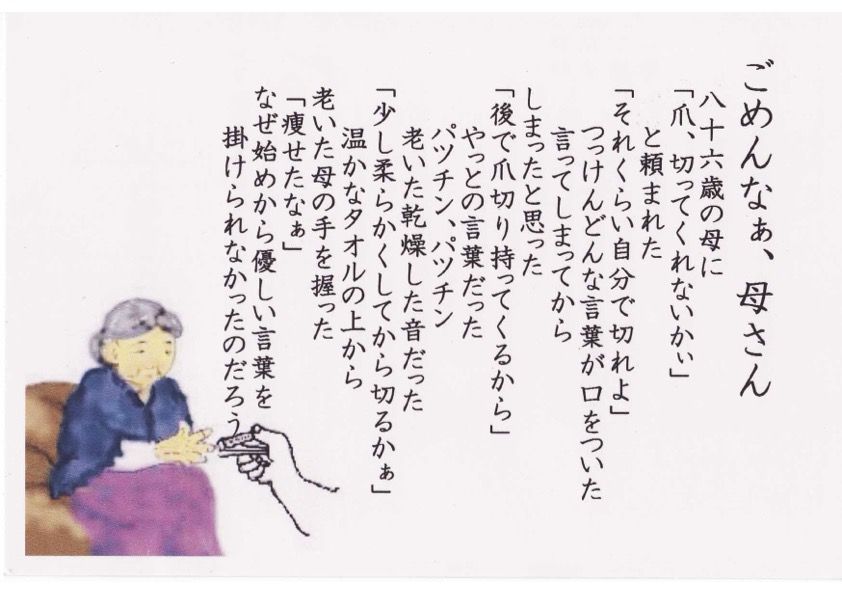 ごめんなぁ、母さん
八十六歳の母に
「爪、切ってくれないかぃ」
と頼まれた
「それくらい自分で切れよ」
つっけんどんな言葉が口をついた
言ってしまってから
しまったと思った
「後で爪切り持ってくるから」
やっとの言葉だった
パツチン、パツチン
老いた乾燥した音だった
「少し柔らかくしてから切るかぁ」
温かなタオルの上から
老いた母の手を握った
「痩せたなぁ」
なぜ始めから優しい言葉を
掛けられなかったのだろう